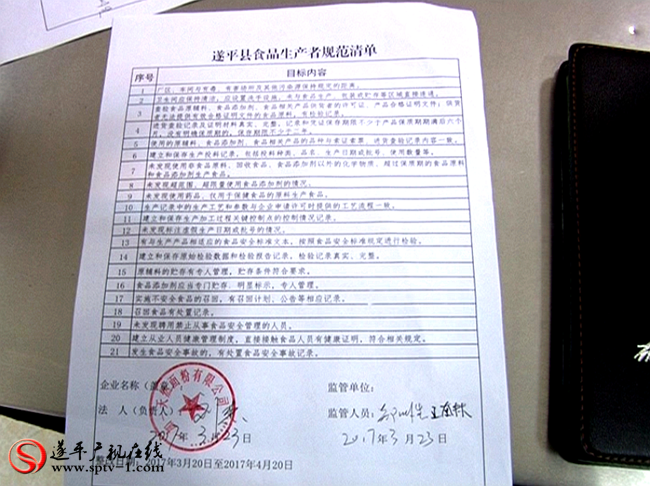 遂平县食品生产者规范清单
序号 目标内容
1 厂区、车间与有毒、有害场所及其他污染源保持规定的距离。
2 卫生间应保持清洁，应设置洗手设施，未与食品生产、包装或贮存等区域直接连通。
3 查验食品原辅料、食品添加剂、食品相关产品供货者的许可证、产品合格证明文件；供货
者无法提供有效合格证明文件的食品原料，有检验记录。
4 进货查验记录及证明材料真实、完整，记录和凭证保存期限不少于产品保质期期满后六个
月，没有明确保质期的，保存期限不少于二年。
5 使用的原辅料、食品添加剂、食品相关产品的品种与索证索票、进货查验记录内容一致。
6 建立和保存生产投料记录，包括投料种类、品名、生产日期或批号、使用数量等。
7 未发现使用非食品原料、回收食品、食品添加剂以外的化学物质、超过保质期的食品原料
和食品添加剂生产食品。
8 未发现超范围、超限量使用食品添加剂的情况。
9 未发现使用药品、仅用于保健食品的原料生产食品。
10 生产记录中的生产工艺和参数与企业申请许可时提供的工艺流程一致。
11 建立和保存生产加工过程关键控制点的控制情况记录。
12 未发现标注虚假生产日期或批号的情况。
13 有与生产产品相适应的食品安全标准文本，按照食品安全标准规定进行检验。
14 建立和保存原始检验数据和检验报告记录，检验记录真实、完整。
15 原辅料的贮存有专人管理，贮存条件符合要求。
16 食品添加剂应当专门贮存、明显标示，专人管理。
17 实施不安全食品的召回，有召回计划、公告等相应记录。
18 召回食品有处置记录。
19 未发现聘用禁止从事食品安全管理的人员。
20 建立从业人员健康管理制度，直接接触食品人员有健康证明，符合相关规定。
21 发生食品安全事故的，有处置食品安全事故记录。
企业名称（盖章） 监管单位：
面粉有限公司
法 人（负责人）： 监管人员：
2017年3月23日 2017年3月23日
整改日期：2017年3月20日至2017年4月20日
遂平广视在线
www.sptv-1.com